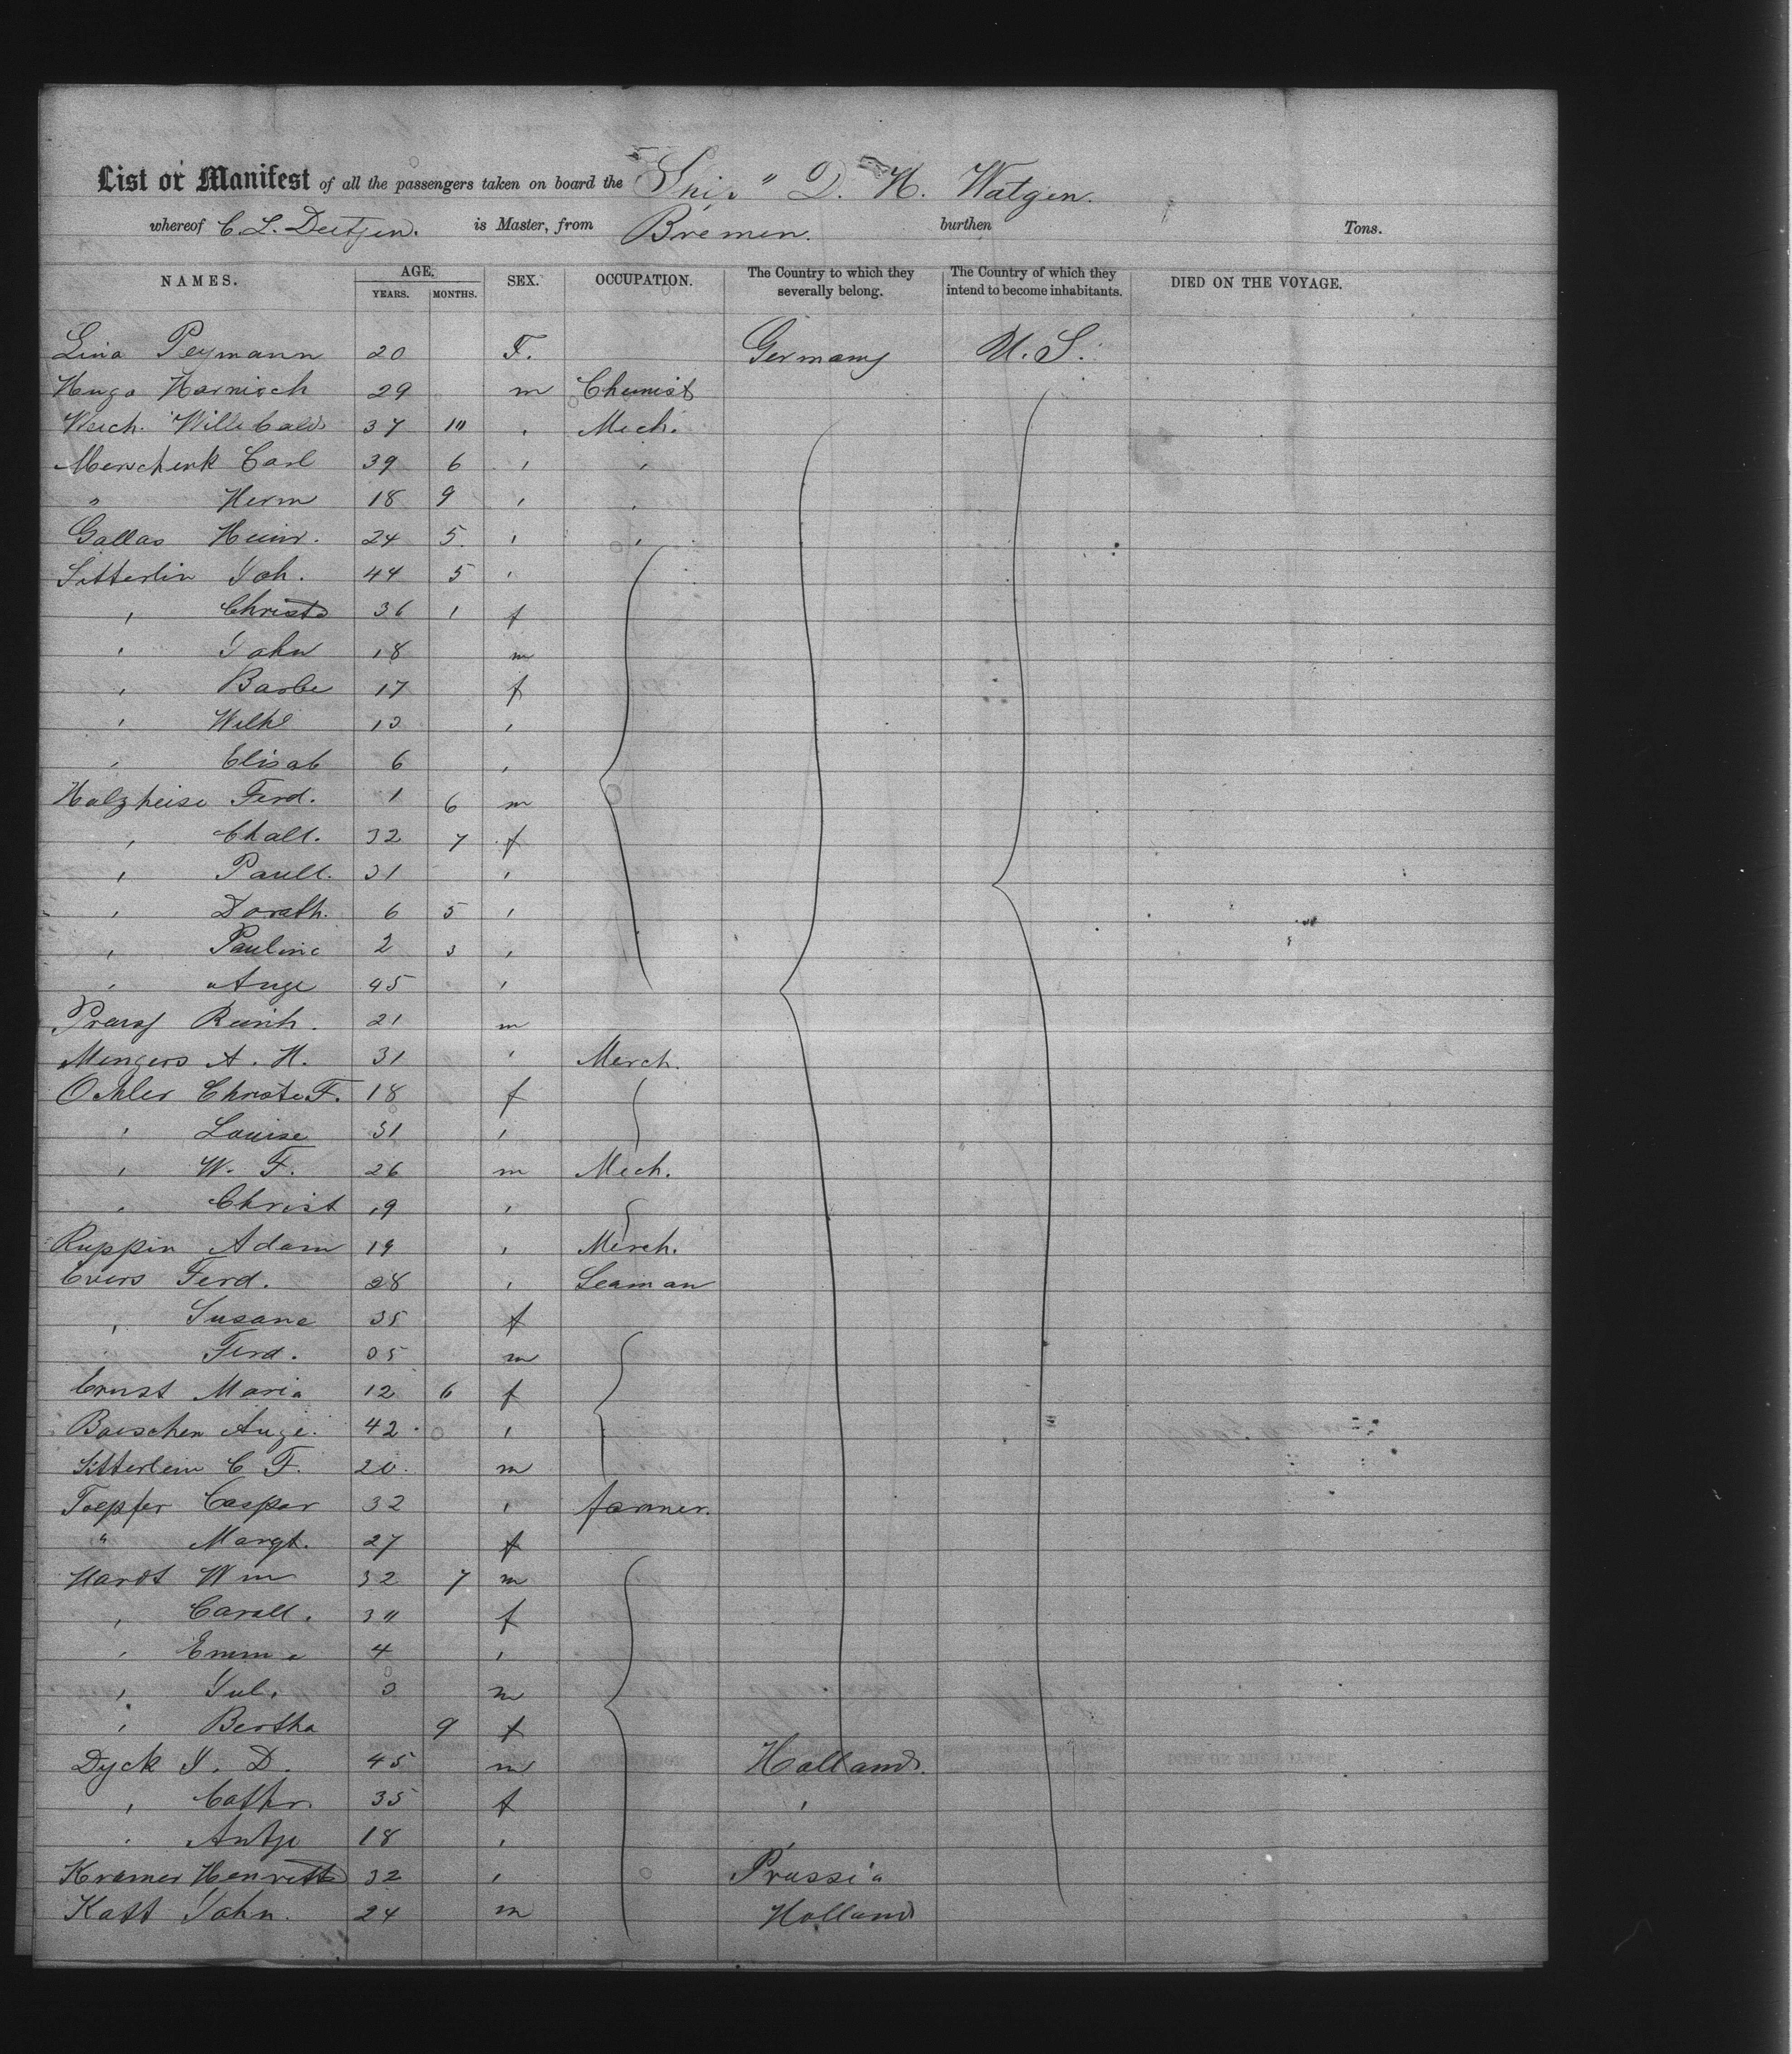 List or Manifest of all the passengers taken on board the Ship " D. H. Watgen.
whereof C. L. Deetjen. is Master, from Bremen. burthen Tons.
NAMES. AGE. YEARS. MONTHS. SEX. OCCUPATION. The Country to which they severally belong. The Country of which they intend to become inhabitants. DIED ON THE VOYAGE.
Lina Peymann 20 F. Germany U. S.
Hugo Harnisch 29 m Chemist
Weich. Willibald 37 10 , Mech.
Merschenk Carl 39 6 , ,
" Herm 18 9 , ,
Gallas Heinr. 24 5 , ,
Sitterlin Joh. 44 5 ,
, Christe 36 1 f
, John 18 m
, Barbe 17 f
, Wilhe ,
, Elisab 6 ,
Holzheise Ferd. 1 6 m
, Chall. 32 7 f
, Paull. 31 ,
, Dorath. 6 5 ,
, Pauline 2 3 ,
, Auge 45 ,
Reinh. 21 m
Mengers A. H. 31 , Merch.
Oehler Christe F. 18 f
, Louise 31 ,
, W. F. 26 m Mech.
, Christ 19 ,
Ruppin Adam 19 , Merch.
Evers Ferd. 28 , Seaman
, Susane 35 f
, Ferd. m
Ernst Maria 12 6 f
Boeschen Auge. 42 ,
Sitterlein C F. 20. m
Toepfer Caspar 32 , farmer.
" Margt. 27 f
Hardt Wm 32 7 m
, Caroll. 30 f
, Emma 4 ,
, Jul. 3 m
, Bertha 9 f
Dyck J. D. 45 m Holland.
, Cathr. 35 f ,
, Antje 18 , ,
Kramer Henrette 32 , Prussia
Katt John. 24 m Holland